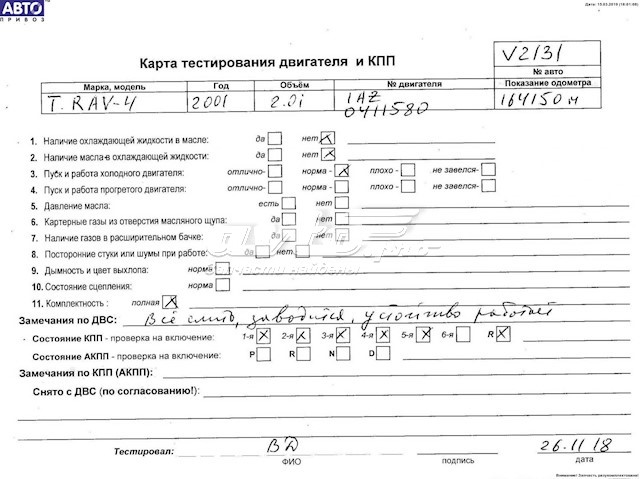 АВТО
ПРИВОЗ
Дата: 15.03.2019
Карта тестирования двигателя и КПП
V2131
№ авто
Марка, модель Год Объём № двигателя Показание одометра
T. RAV-4 2001 2.0i 1AZ 0411580 164150 м
1. Наличие охлаждающей жидкости в масле: да нет X
2. Наличие масла в охлаждающей жидкости: да нет X
3. Пуск и работа холодного двигателя: отлично- норма - X плохо - не завелся-
4. Пуск и работа прогретого двигателя: отлично- норма - плохо - не завелся-
5. Давление масла: есть нет
6. Картерные газы из отверстия масляного щупа: да нет
7. Наличие газов в расширительном бачке: да нет
8. Посторонние стуки или шумы при работе: да нет
9. Дымность и цвет выхлопа: норма
10. Состояние сцепления: норма
11. Комплектность : полная X
Замечания по ДВС: Всё снято, заводится, устойчиво работает
Состояние КПП - проверка на включение: 1-я X 2-я X 3-я X 4-я X 5-я X 6-я R X
Состояние АКПП - проверка на включение: P R N D
Замечания по КПП (АКПП):
Снято с ДВС (по согласованию!):
Тестировал: ВД 26.11.18
ФИО подпись дата